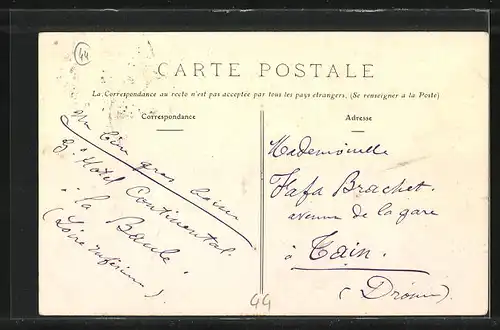 44
CARTE POSTALE
La Correspondance au recto n'est pas acceptée par tous les pays étrangers. (Se renseigner à la Poste)
Correspondance
un bien gros baiser
Hotel Continental.
à la Baule
(Loire Inférieure).
Adresse
Mademoiselle
Fafa Brachet.
avenue de la gare
à Tain.
(Drôme)
44